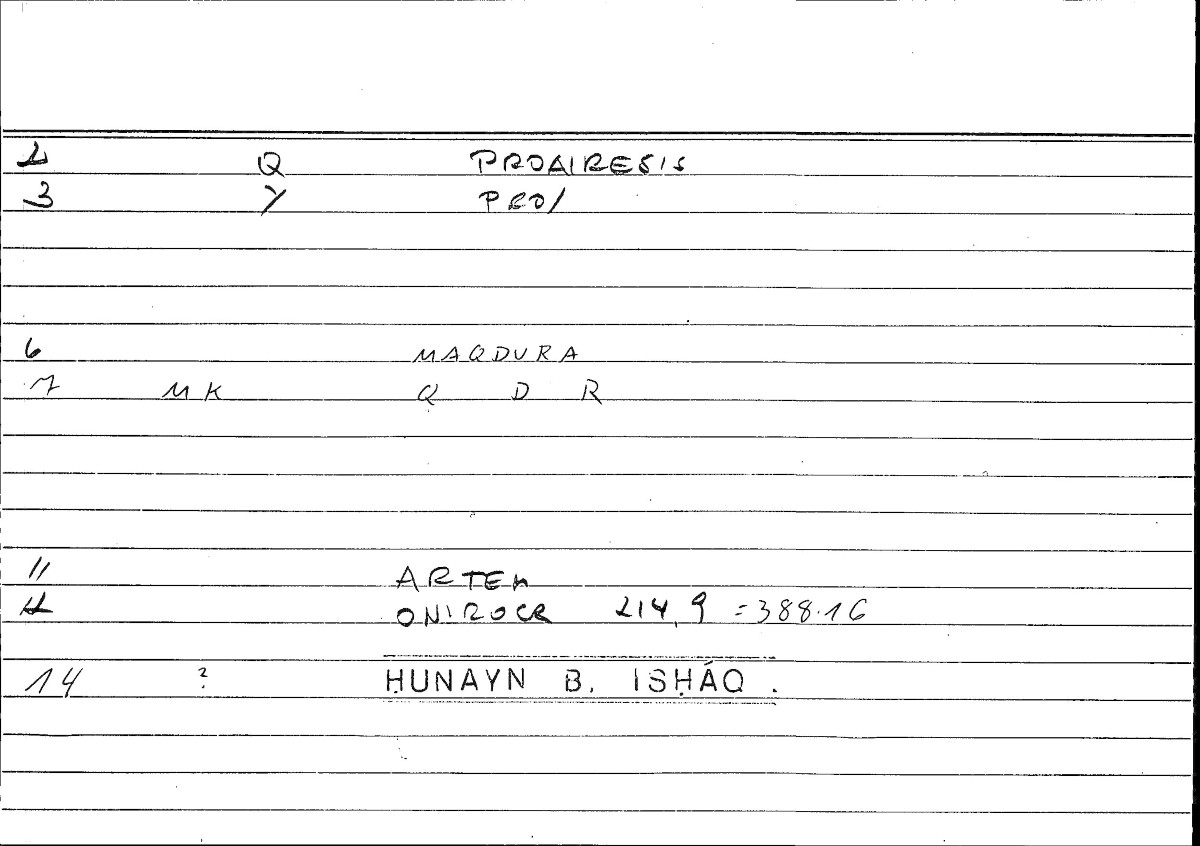 2 Q PROAIRESIS
3 Y PRO/
6 MAQDURA
7 MK Q D R
11 ARTEM
12 ONIROCR 214,9 =388.16
14 ? ḤUNAYN B. ISḤÁQ.